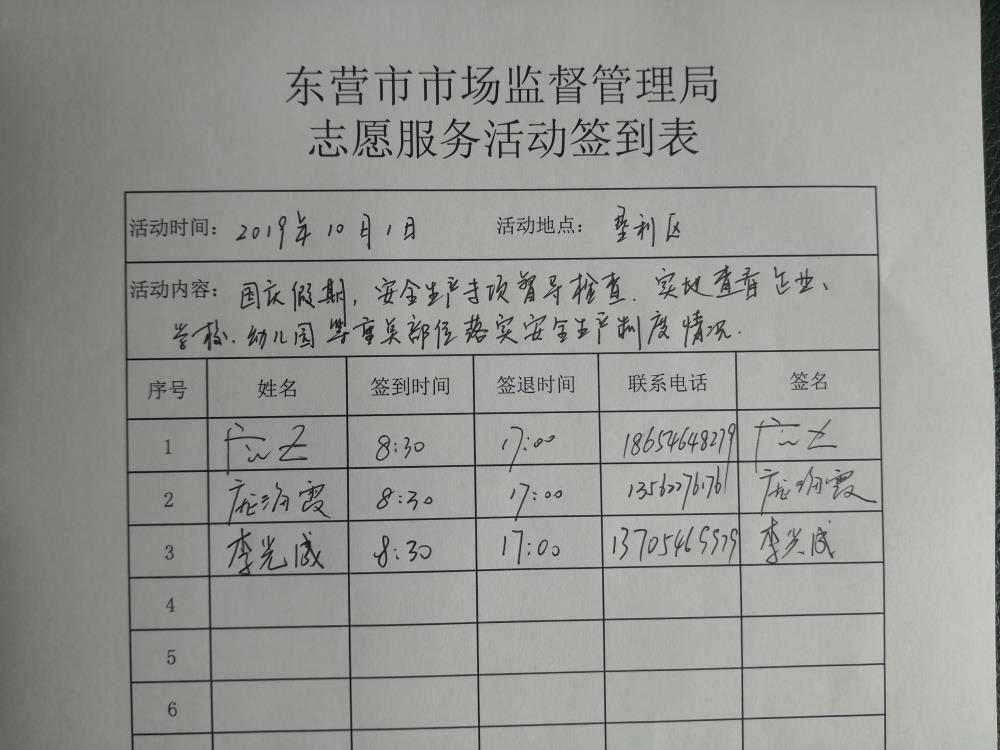 东营市市场监督管理局
志愿服务活动签到表
活动时间： 2019年10月1日 活动地点： 垦利区
活动内容： 国庆假期，安全生产专项督导检查．实地查看企业、
学校．幼儿园等重点部位落实安全生产制度情况．
序号 姓名 签到时间 签退时间 联系电话 签名
1 8:30 17:00 18654648279
2 庞海霞 8:30 17:00 13562276761 庞海霞
3 李光成 8:30 17:00 李光成
4
5
6